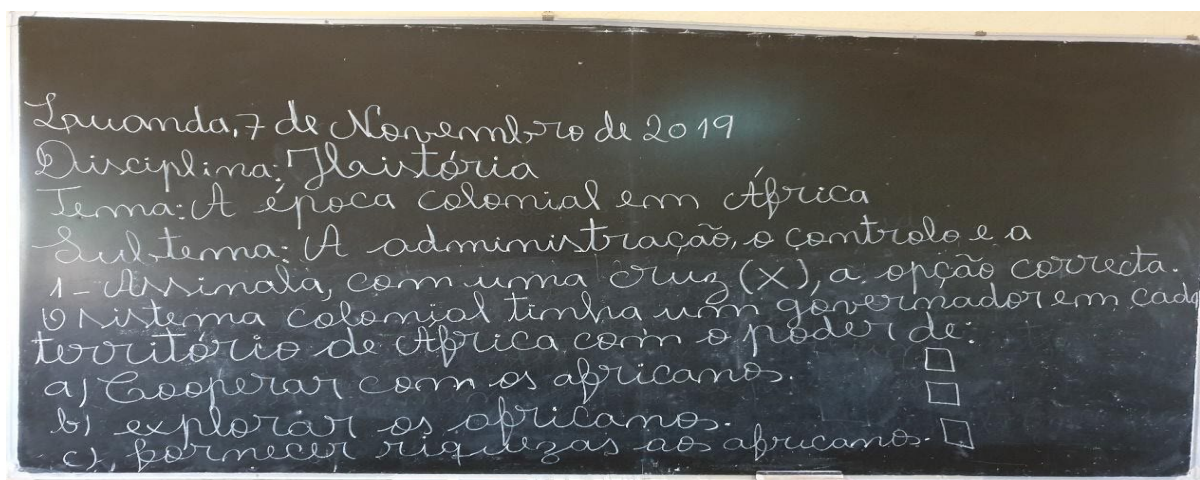 Luanda, 7 de Novembro de 2019
Disciplina: História
Tema: A época colonial em África
Subtema: A administração, o controlo e a
1- Assinala, com uma cruz (X), a opção correcta.
O sistema colonial tinha um governador em cada
território de África com o poder de:
a) Cooperar com os africanos. □
b) explorar os africanos. □
c) fornecer riquezas aos africanos. □